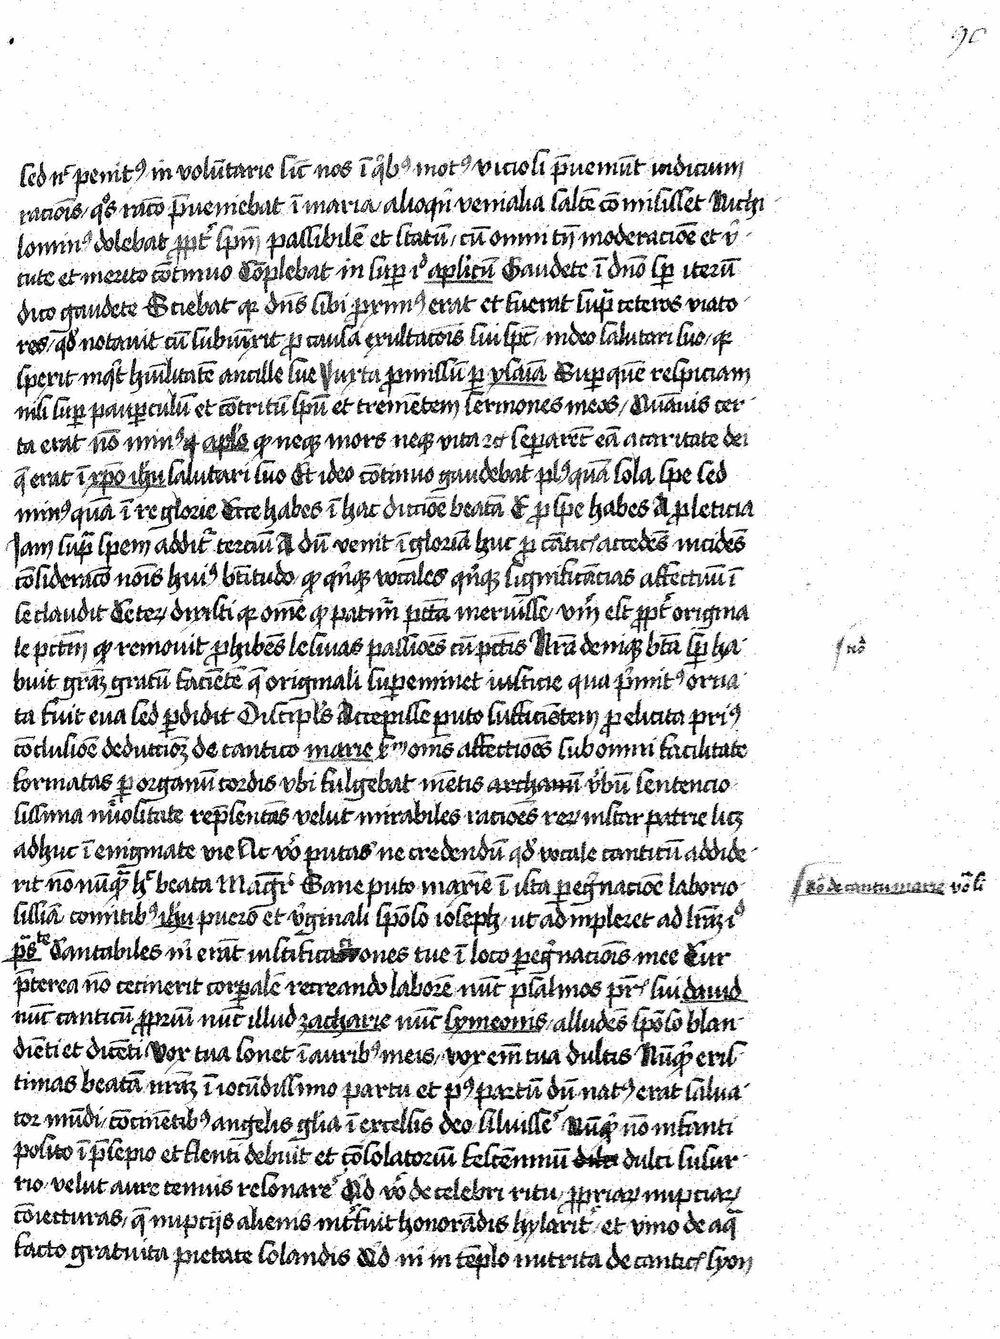 sed nc penitꝰ in volūtarie sic nos ī qͥbꝰ motꝰ viciosi p̄veniūt iudicium
racōis / qͦs raco p̄veniebat ī maria / alioqn̄ venialia saltē cōmisisset Nichi
lominꝰ dolebat ꝓpt̄ spm̄ passibilē et statū / cū omni tn̄ moderacōe et v̄
tute et merito cōtinuo Cōplebat in sup iͦ aplicū Gaudete ī dn̄o sp̄ iterū
dico gaudete Sciebat qꝫ dn̄s sibi ꝓximꝰ erat et fuerat sup̄ ceteros viato
res / qd̄ notavit cū subiūxit ꝓ causa exultacōis sui spc / in deo salutari suo / qꝫ
sperit inqͭ hūilitatē ancille sue Juxta ꝓmissū ꝑ ysaiā Suꝑ quē respiciam
nisi suꝑ pauꝑculū et cōtritū spū et tremētem sermones meos / Quāvis cer
ta erat nō minꝰ apl̄s qꝫ neqꝫ mors neqꝫ vita separēt eā a caritate dei
q̄ erat ī xpō ihū salutari suo Et ideo cōtinuo gaudebat plꝰ quā sola spe sed
minꝰ quā ī re glorie Ecce habes ī hac dictiōe beatā E ꝓ spe habes A ꝓ leticia
Jam sup̄ spem additͬ terciū A dū venit ī gloriā huc ꝓ cātic accedēs incidēs
cōsideracō nōis huiꝰ btītudo / qꝫ qn̄qꝫ vocales qn̄qꝫ significācias affectiuū ī
se claudit Ceteꝝ dixisti qꝫ om̄e qꝫ patim̄ pctā meruisse / vnū est ꝓpt̄ origina
le pctm̄ qꝫ removit ꝓhibēs lesivas passiōes cū pctīs Nrā deniqꝫ btā sp̄ ha
buit grāꝫ gratū faciētē q̄ originali supeminet iusticie qua p̄mitꝰ orna
ta fuit eva sed ꝑdidit Discipls Accepisse puto sufficiētem ꝓ elicita priꝰ
cōclusiōe deductiōꝫ de cantico marie om̄s affectiōes sub omni facilitate
formatas ꝑ organū cordis vbi fulgebat mētis archanū v̄bū sentencio
sissima nūolitate rep̄sentās velut mirabiles raciōes reꝝ instar patrie licꝫ
adhuc ī enigmate vie Ac vō putas ne credendū qd̄ vocale canticū addide
rit nō nūq̄ hͨ beata Mag̅rͥ Sane puto mariē ī ista ꝑeg̅nacōe laborio
sissīa comitibꝰ ihū puero et v̄ginali spōso ioseph / ut adimpleret ad lrāꝫ iͦ
ps̄te Cantabiles m̄ erāt iustificaones tue ī loco ꝑeg̅nacōis mee Cur
p̄terea nō cecinerit corꝑalē recreando laborē nūc psalmos pr̄s sui david
nūc canticū ꝓpriū nūc illud zacharie nūc symeonis / alludēs spōso blan
diēti et dicēti Vox tua sonet ī auribꝰ meis / vox em̄ tua dulcis Nūqͥd exis
timas beatā nrāꝫ ī iocūdissimo partu et pꝰ partū dū natꝰ erat salva
tor mūdi / cōcinētibꝰ angelis gl̄ia ī excelsis deo / siluisse Nūqͥd nō infanti
posito ī p̄sepio et flenti debuit et cōsolatoriū fescēnniū dulci susur
rio velut aure tenuis resonare Qͥd vō de celebri ritu / ꝓpriaꝝ nupciaꝝ
cōiecturas / q̄ nupcijs alienis int̄fuit honorādis hylarit̄ et vino de aq̄
facto gratuita pietate solandis Qͥd m̄ in tēplo nutrita de cantic syon
nō
nō de cantu marie vōli